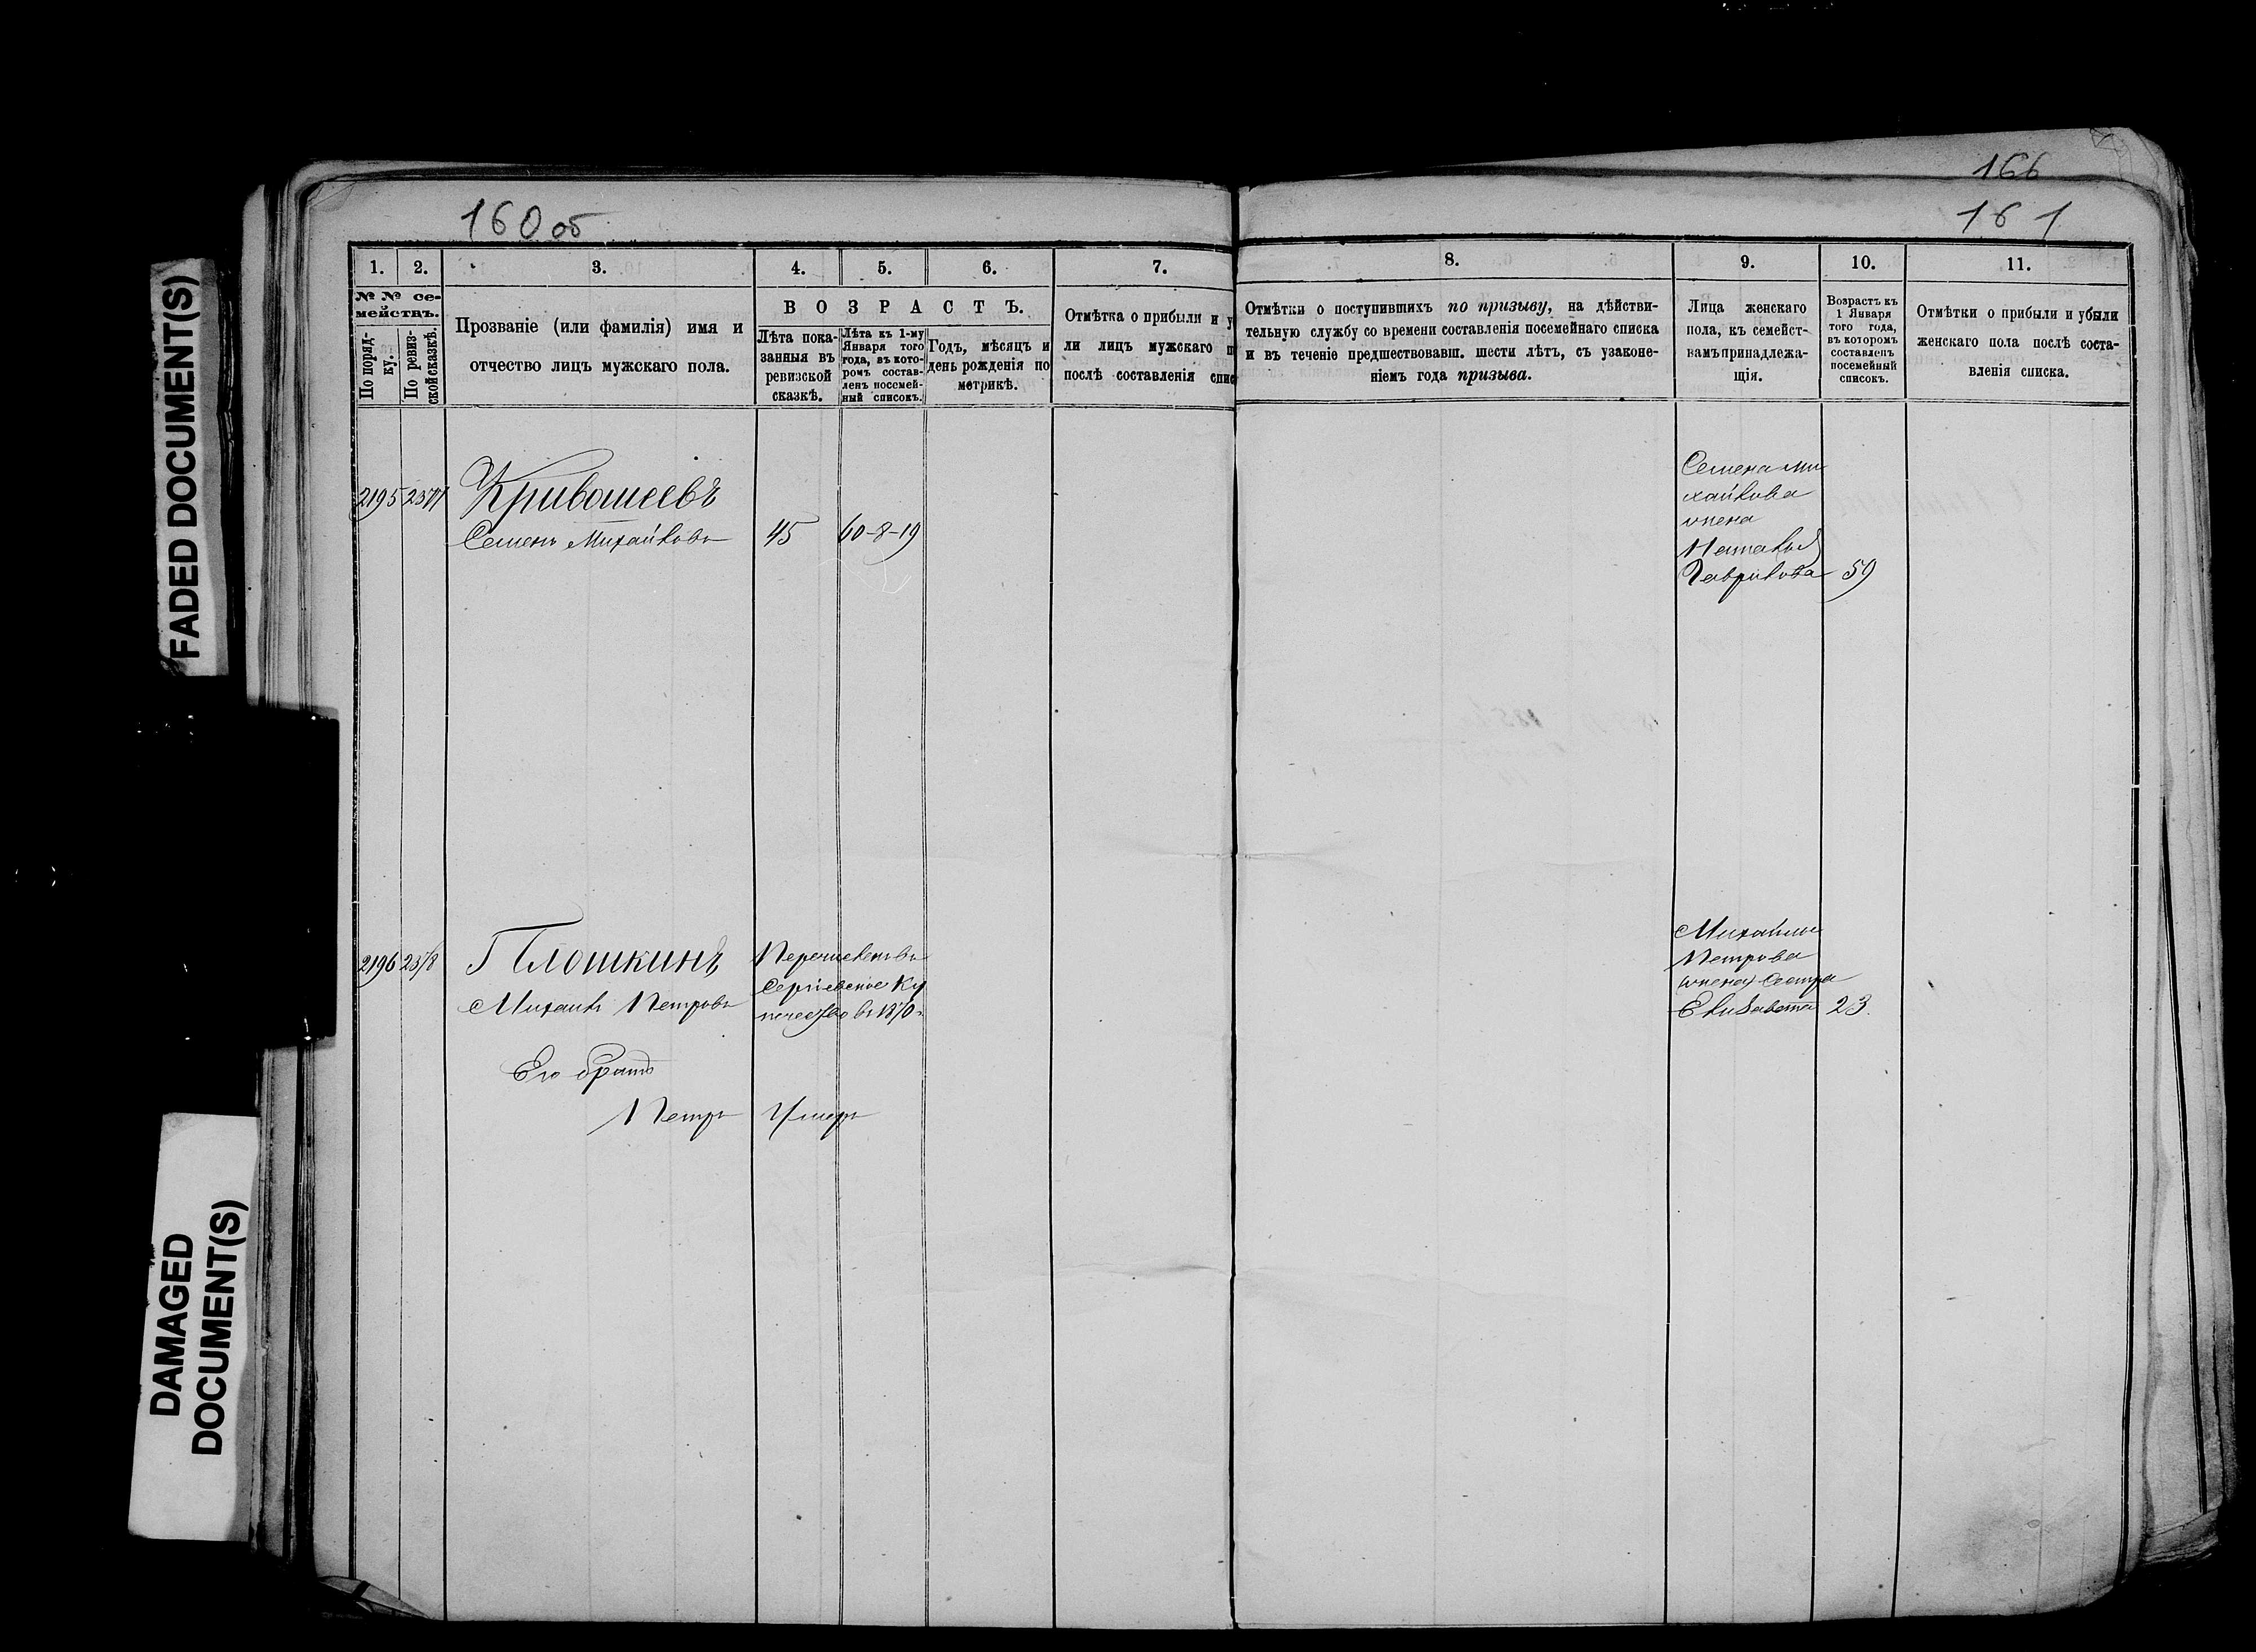 166
160 об
161
1.
2.
3.
4.
5.
6.
7.
8.
9.
10.
11.
№ № се-
мействъ.
По поряд-
ку.
По ревиз-
скойсказкѣ.
Прозваніе (или фамилія) имя и
отчество лицъ мужскаго пола.
ВОЗРАСТЪ.
Лѣта пока-
занныя въ
ревизской
сказкѣ.
Лѣта къ 1-му
Января того
года, въ кото-
ромъ состав-
ленъ посемей-
ный списокъ.
Годъ, мѣсяцъ и
день рожденія по
метрикѣ.
Отмѣтка о прибыли и у
ли лицъ мужскаго п
послѣ составленія спис
Отмѣтки о поступившихъ по призыву, на дѣйстви-
тельную службу со времени составленія посемейнаго списка
и въ теченіе предшествовавш. шести лѣтъ, съ узаконе-
ніемъ года призыва.
Лица женскаго
пола, къ семейст-
вамъ принадлежа-
щія.
Возрастъ къ
1 Января
того года,
въ которомъ
составленъ
посемейный
списокъ.
Отмѣтки о прибыли и убыли
женскаго пола послѣ соста-
вленія списка.
2195
Кривошеевъ
Семенъ Михайловъ
45
60-8-19
Семена Ми
хайлова
жена
Наталья
Гаврилова 59
2196
Плошкинъ
Михаилъ Петровъ
Перечисленъ въ
Сергіевское Ку
печество въ 1870
Его братъ
Петръ
Умеръ
Михаила
Петрова
жена сестра
Елизавета 23.
FADED DOCUMENT(S)
DAMAGED
DOCUMENT(S)